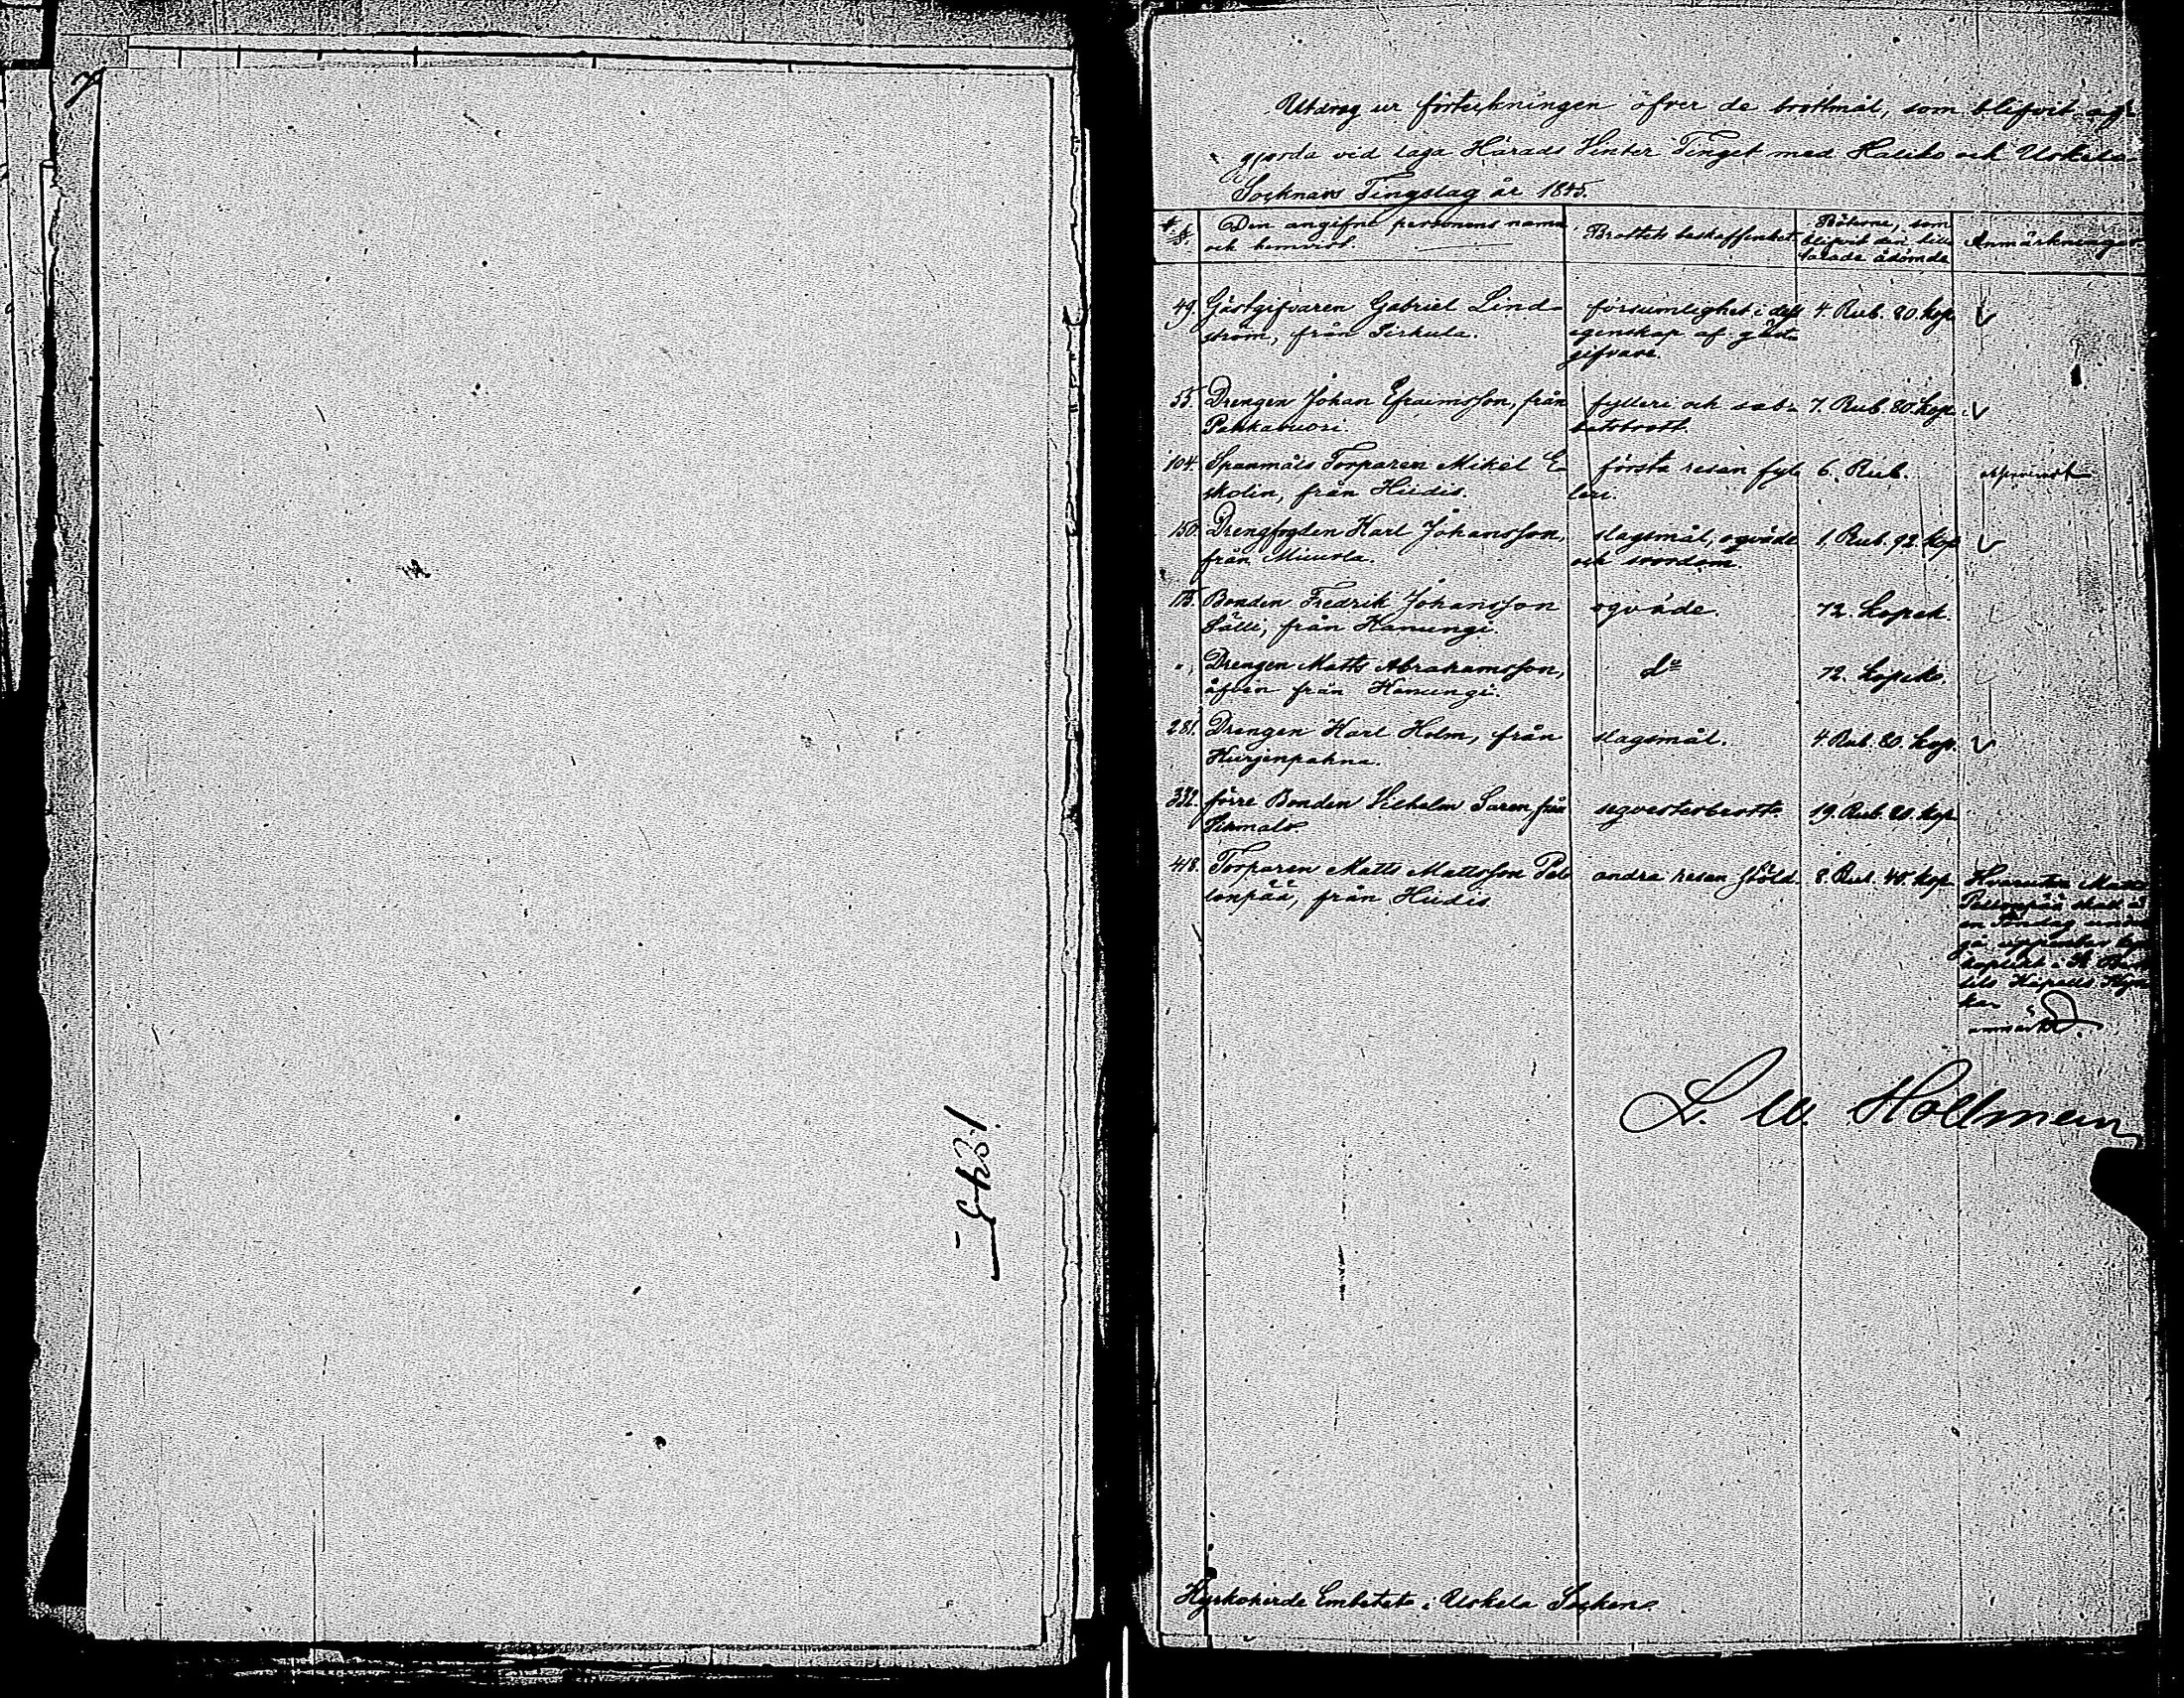 1845.
Utdrag ur förteckningen öfver de brottmål, som blifvit af-
gjorda vid laga Härads Vinter Tinget med Haliko och Uskela
Socknars Tingslag år 1845.
§. §. Den angifne personens namn och hemvist. Brottets beskaffenhet. Böterne, som blifvit den till- talade ådömde Anmärkningar
49. Gästgifvaren Gabriel Lind- försumlighet i dess 4 Rub. 80 kop
ström, från Pirkula. egenskap af gäst-
gifvare.
55. Drengen Johan Efraimsson, från fylleri och sab- 7. Rub. 80. kop.
Pahkavuori. batsbrott.
104. Spanmåls Torparen Mikel E- första resan fyl- 6. Rub.
skolin, från Hiidis. leri.
150. Drengfogden Karl Johansson, slagsmål, oqväde 1. Rub. 92. kop
från Muurla. och svordom.
175. Bonden Fredrik Johansson oqväde. 72. kopek.
Sälli, från Kanungi.
" Drengen Matts Abrahamsson, do 72. kopek.
äfven från Kanungi.
281. Drengen Karl Holm, från slagsmål. 4. Rub. 80. kop.
Kurjenpahna.
332. förre Bonden Vilhelm Saren, från seqvesterbrott. 19. Rub. 20. kop
418. Torparen Matts Mattsson Pel- andra resan stöld. 8. Rub. 45. kop
tonpää, från Hiidis
en Söndag
kapell
ka.
anmärkt
L. W. Hollmen
Kyrkoherde Embetet i Uskela Socken.